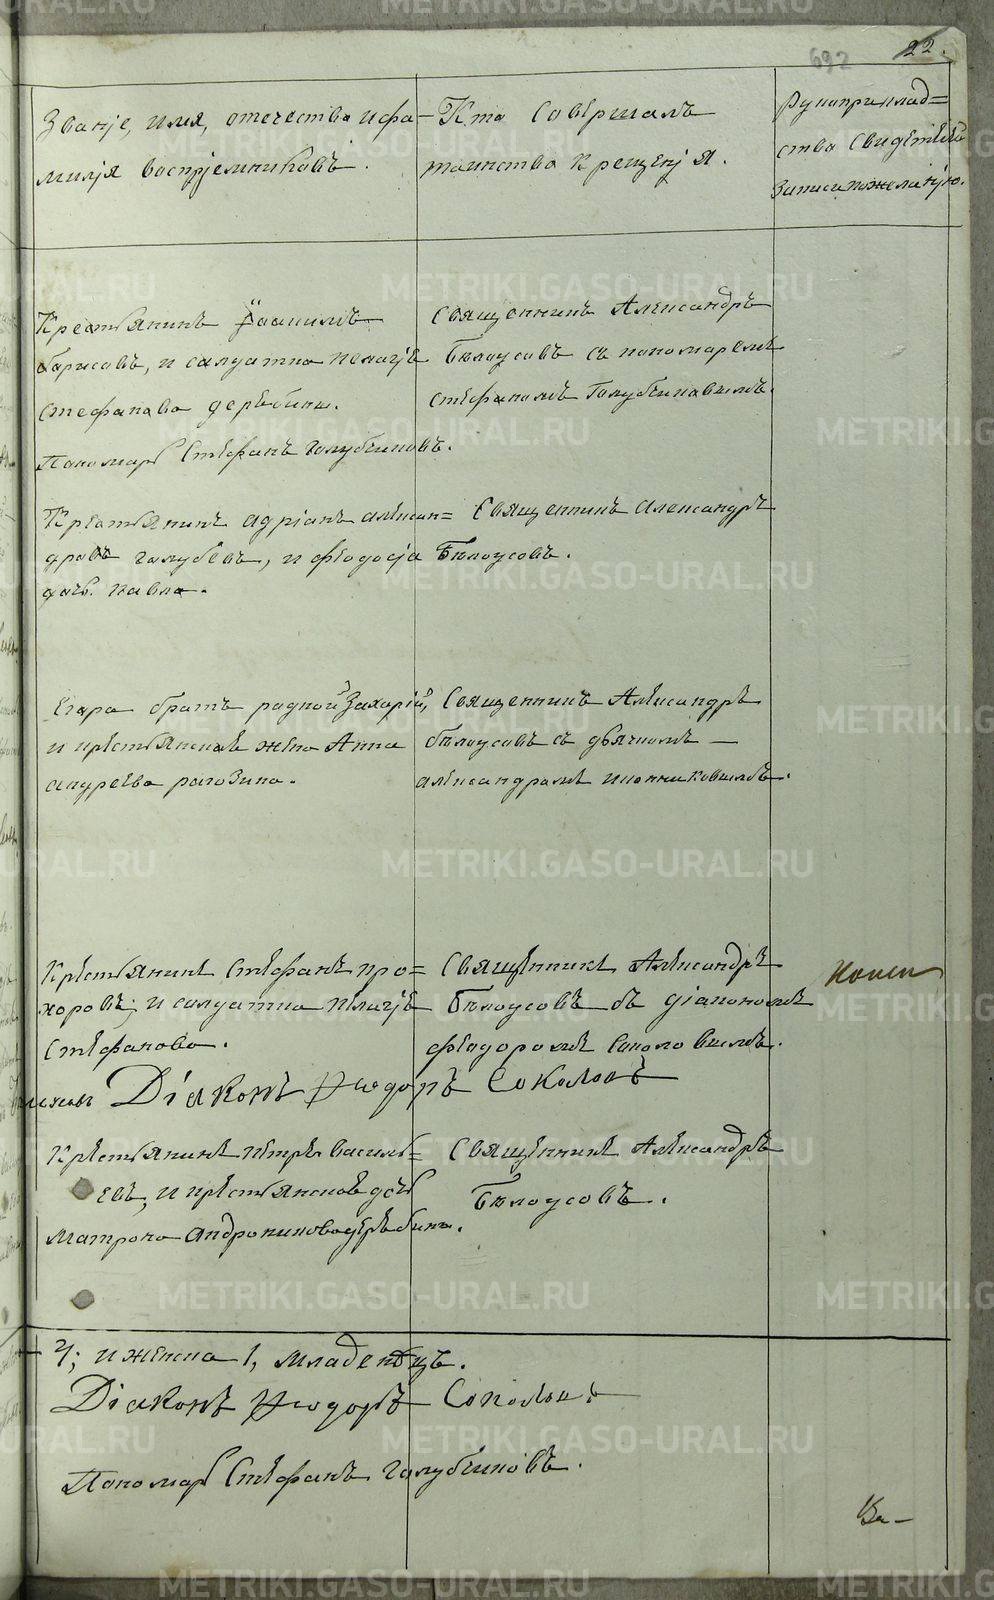 692 22.
Званје, имя, отечество ифа-
милія воспрјемниковъ.
Кто совершалъ
таинство крещенјя.
Рукоприклад=
ство свидѣтелей
записи пожеланјю.
Крестьянинъ Даонилъ
барисовъ, и салдатка пелагјѣ
стефанова дерѣбина.
Пономарь Стефанъ голубчиковъ.
священникъ Александръ
Бѣлоусовъ съ пономаремъ
стефаномъ Голубчиковымъ.
Крестьянинъ адріанъ алексан=
дровъ голубевъ, и феодосја
дочь павла.
Священникъ александръ
Бѣлоусовъ.
Егора братъ родной Захарій,
и крестьянская жена Анна
андреева рагозина.
Священникъ Александръ
бѣлоусовъ съ дьячкомъ —
александромъ иконниковымъ.
Крестьянинъ Стефанъ про=
хоровъ; и салдатка пелагјѣ
Стефанова.
Священникъ Александръ
Бѣлоусовъ съ діакономъ
феодоромъ соколовымъ.
Діаконъ Феодоръ Соколовъ
Крестьянинъ петръ василь=
евъ, и крестьянская дочь
матрона андроникова дерѣбина.
Священникъ Александръ
Бѣлоусовъ.
4; и женска 1, младенецъ.
Діаконъ Феодоръ Соколовъ
Пономарь Стефанъ голубчиковъ.